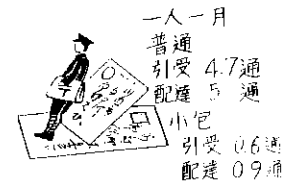 一人一月
普通
引受 4.7通
配達 5 通
小包
引受 0.6通
配達 0.9通